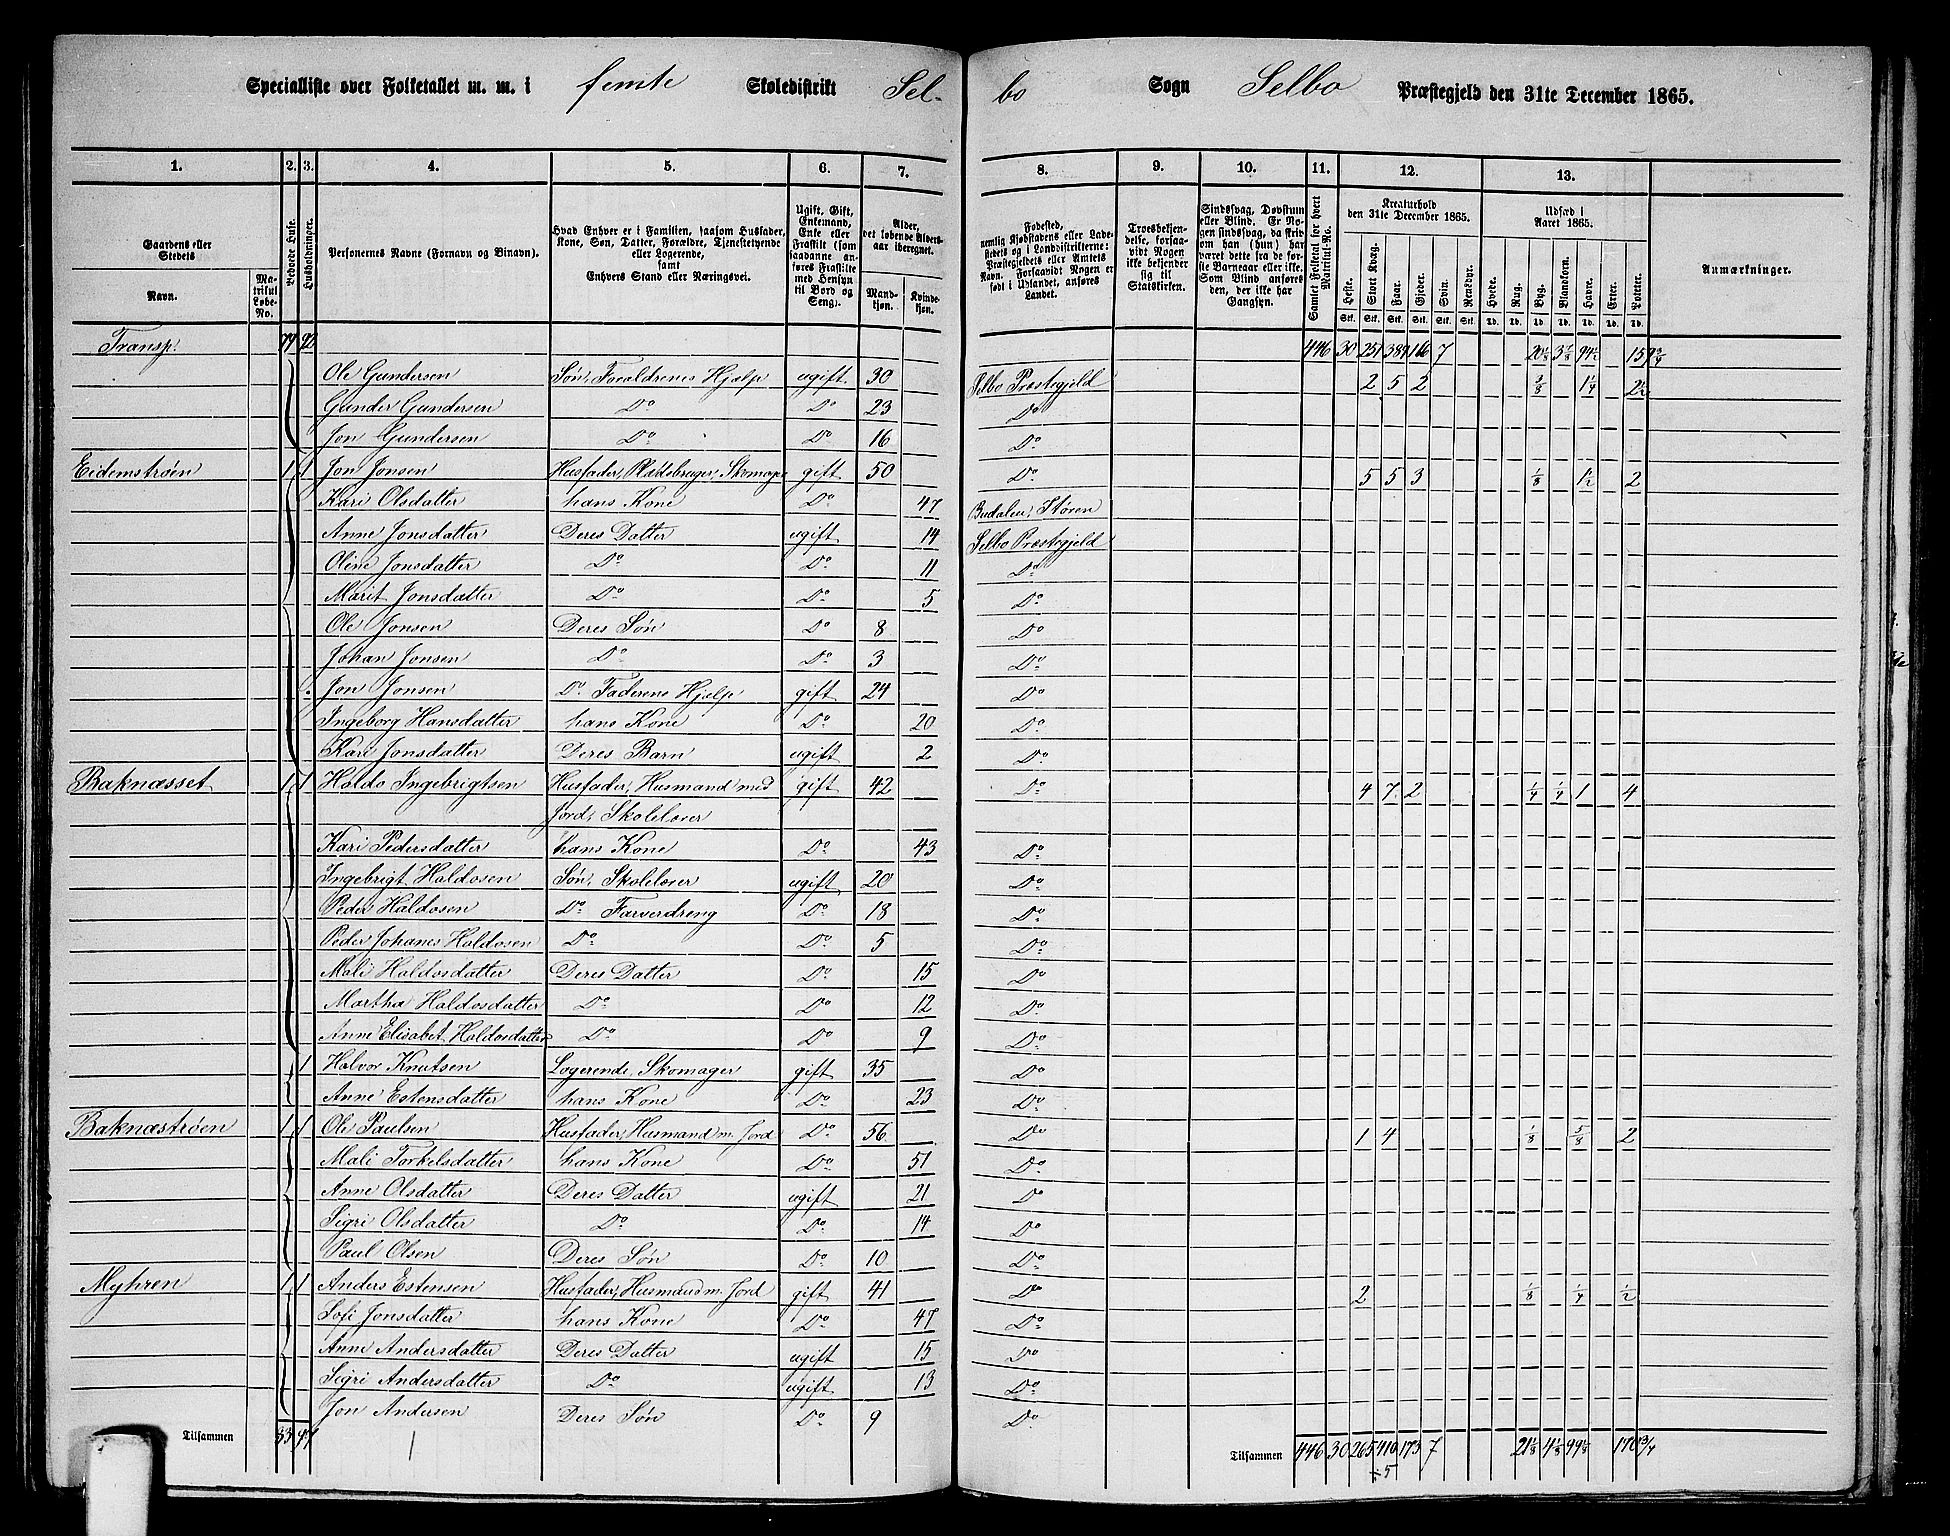 Specialliste over Folketallet m. m. i femte Skoledistrikt Selbo Sogn Selbo Præstegjeld den 31te December 1865.
1. 2. 3. 4. 5. 6. 7. 8. 9. 10. 11. 12. 13.
Gaardens eller Stedets Navn. Matrikul Løbe-No. Beboede Huse. Husholdninger. Personernes Navne (Fornavn og Binavn). Hvad Enhver er i Familien, saasom Husfader, Kone, Søn, Datter, Forældre, Tjenestetyende eller Logerende, samt Enhvers Stand eller Næringsvei. Ugift, Gift, Enkemand, Enke eller Fraskilt (som saadanne anføres Fraskilte med Hensyn til Bord og Seng). Alder, det løbende Aldersaar iberegnet. Mandkjøn. Kvindekjøn.
Fødested, nemlig Kjøbstadens eller Ladestedets og i Landdistrikterne: Præstegjeldets eller Amtets Navn. Forsaavidt Nogen er født i Udlandet, anføres Landet. Troesbekjendelse, forsaavidt Nogen ikke bekjender sig til Statskirken. Sindssvag, Døvstum eller Blind. Er Nogen sindssvag, da skrives om han (hun) har været dette fra de første Barneaar eller ei. Som Blind ansøres den, der ikke har Gangsyn. Samlet Folketal for hvert Matrikul-No. Kreaturhold den 31te December 1865. Heste. Stort Kvæg. Faar. Gjeder. Svin. Rensdyr. Udsæd i Aaret 1865. Hvede. Rug. Byg. Blandkorn. Havre. Erter. Poteter. Anmærkninger.
Stk. Stk. Stk. Stk. Stk. Stk. Td. Td. Td. Td. Td. Td. Td.
Transp. 79 92 446 30 251 389 166 7 20 1/8 3 7/8 94 1/2 159 3/4
Ole Gundersen Søn, Forældrenes Hjælp ugift 30 Selbo Præstegjeld 2 5 2 3/8 1 1/4 2 1/2
Gunder Gundersen Do Do 23 Do
Jon Gundersen Do Do 16 Do
Eidemstrøen 1 1 Jon Jonsen Husfader, Pladsbruger, Skomager gift 50 Do 5 5 3 1/8 1 1/2 2
Kari Olsdatter hans Kone Do 47 Budalen, Støren
Anne Jonsdatter Deres Datter ugift 14 Selbo Præstegjeld
Oline Jonsdatter Do Do 11 Do
Marit Jonsdatter Do Do 5 Do
Ole Jonsen Deres Søn Do 8 Do
Johan Jonsen Do Do 3 Do
Jon Jonsen Do Faderens Hjælp gift 24 Do
Ingeborg Hansdatter hans Kone Do 20 Do
Kari Jonsdatter Deres Barn ugift 2 Do
Baknæsset 1 1 Haldo Ingebrigtsen Husfader, Husmand med gift 42 Do 4 7 2 1/4 1/4 1 4
Jord, Skolelærer
Kari Pedersdatter hans Kone Do 43 Do
Ingebrigt Haldosen Søn, Skolelærer ugift 20 Do
Peder Haldosen Do Farverdreng Do 18 Do
Peder Johanes Haldosen Do Do 5 Do
Mali Haldosdatter Deres Datter Do 15 Do
Martha Haldosdatter Do Do 12 Do
Anne Elisabet Haldosdatter Do Do 9 Do
1 Halvor Knutsen Logerende, Skomager gift 35 Do
Anne Estensdatter hans Kone Do 23 Do
Baknæstrøen 1 1 Ole Paulsen Husfader, Husmand m. Jord Do 56 Do 1 4 1/8 5/8 2
Mali Torkelsdatter hans Kone Do 51 Do
Anne Olsdatter Deres Datter ugift 21 Do
Sigri Olsdatter Do Do 14 Do
Paul Olsen Deres Søn Do 10 Do
Myhren 1 1 Anders Estensen Husfader, Husmand m. Jord gift 41 Do 2 1/8 1/4 1/2
Sofi Jonsdatter hans Kone Do 47 Do
Anne Andersdatter Deres Datter ugift 15 Do
Sigri Andersdatter Do ugift 13 Do
Jon Andersen Deres Søn Do 9 Do
Tilsammen 83 97 Tilsammen 446 30 265 410 173 7 21 1/8 4 1/8 99 1/8 170 3/4
÷5